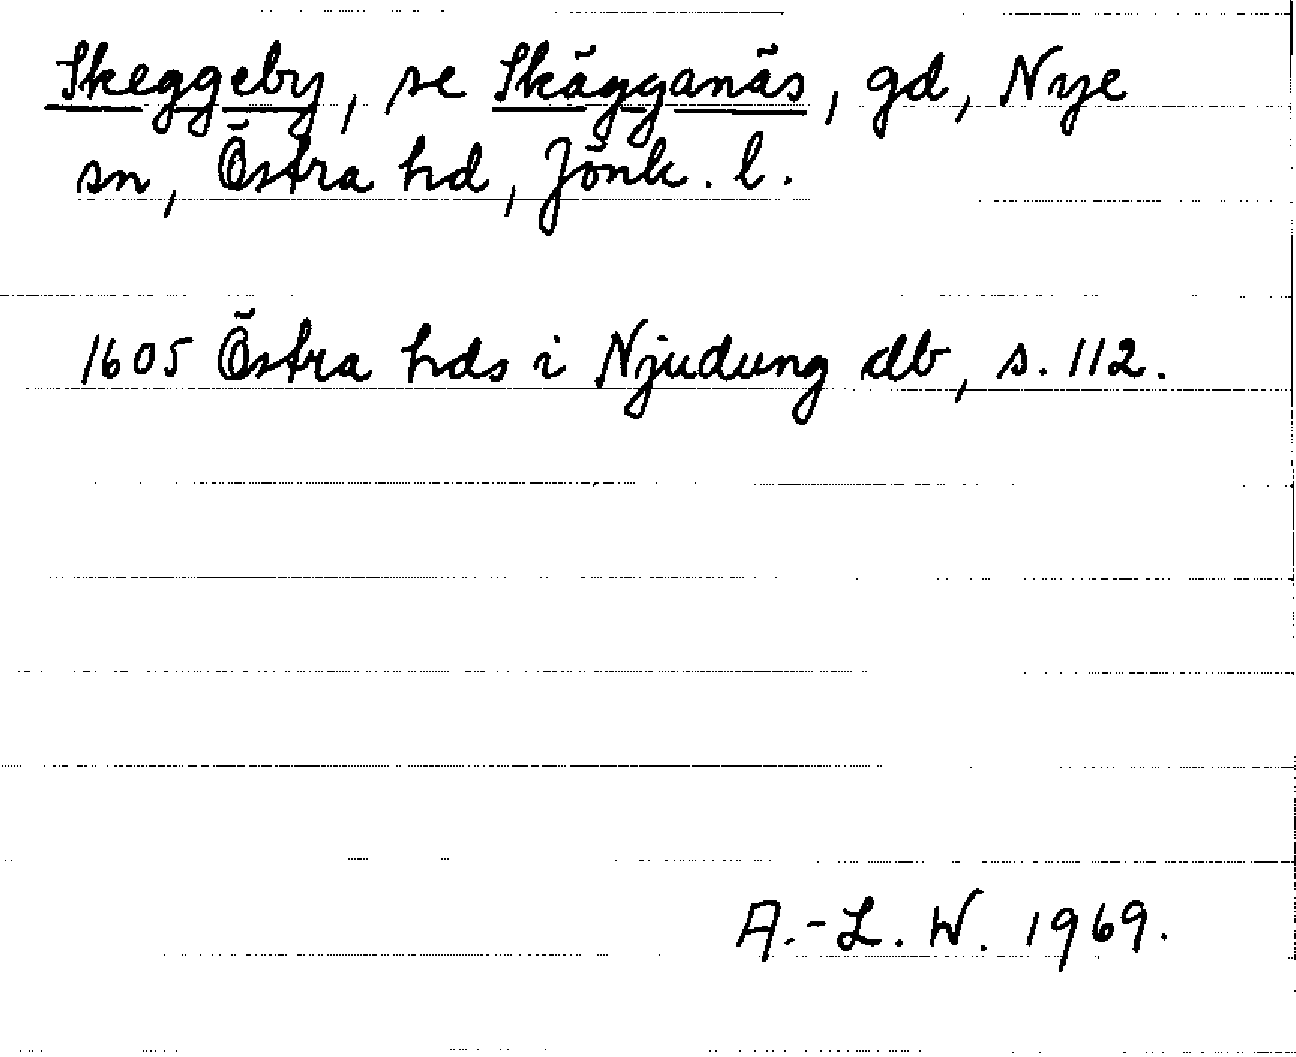 Skeggeby, se Skägganäs, gd, Nye
sn, Östra hd, Jönk. l.
1605 Östra hds i Njudung db, s. 112.
A.-L. W. 1969.